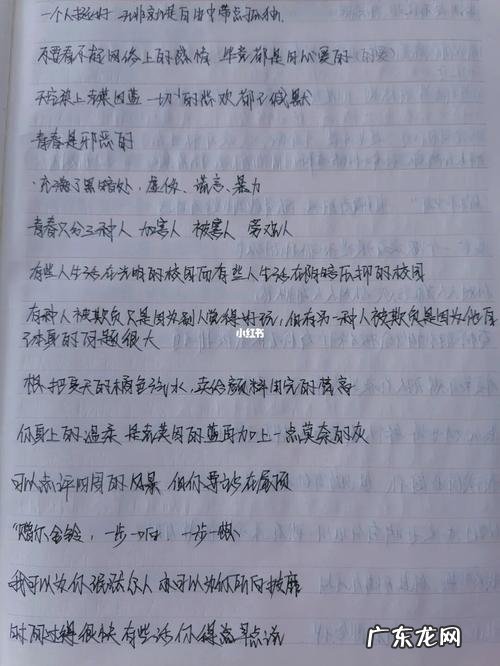 一个人挺好 无非就是自由中带点孤独.
不要看不起网络上的感情 毕竟都是用心爱的
天空染上克莱因蓝 一切的悲欢都已缄默
青春是邪恶的
充满了黑暗处、虚伪、谎言、暴力
青春只分三种人 加害人 被害人 旁观人
有些人生活在光明的校园而有些人生活在阴暗压抑的校园
有种人被欺负只是因为别人觉得好玩，但有另一种人被欺负是因为他自
本身的问题很大
小红书
把夏天的橘色汽水，卖给颜料用完的落高
你身上的温柔 是克莱因的蓝再加上一点莫奈的灰
可以点评四周的风景 但你要站在屋顶
"赠你金铃，一步一响，一步一想
我可以为你 众人 亦可以为你所向披靡
时间过得很快 有些话你得早点说
广东龙网